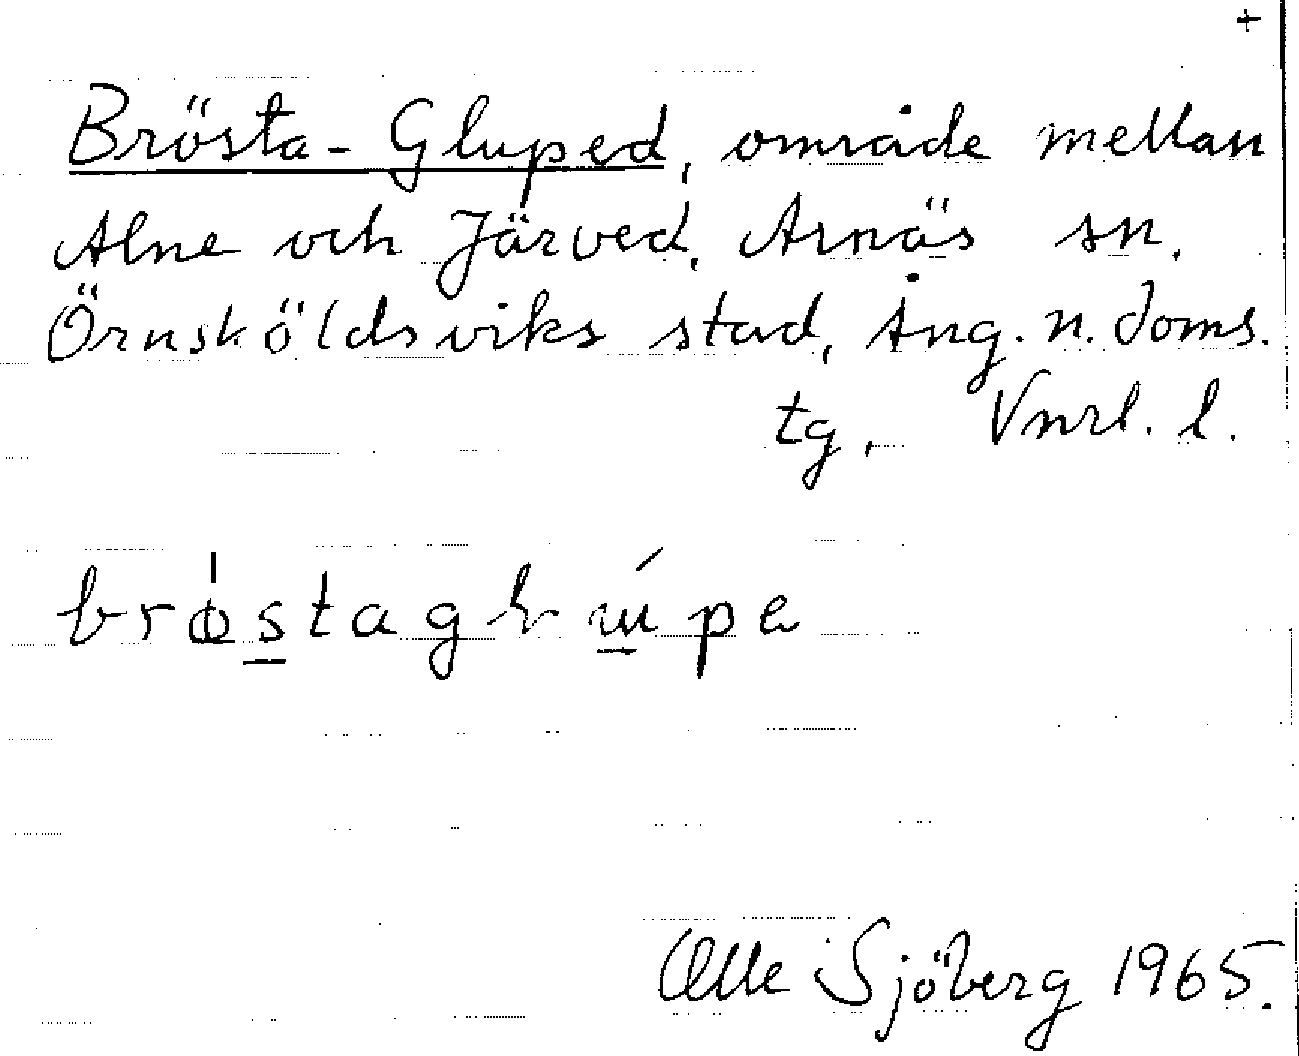 +
Brösta-Gluped, område mellan
Alne och Järved, Arnäs sn,
Örnsköldsviks stad, Ång. n. doms.
tg, Vnrl. l.
Olle Sjöberg 1965.